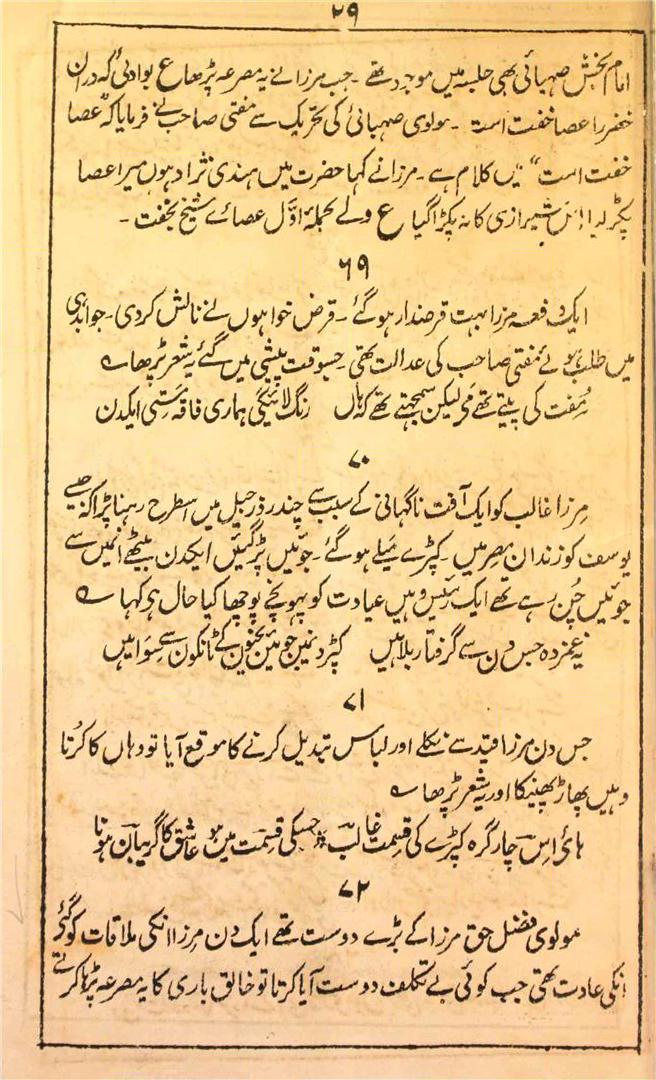 ۲۹
امام بخش صہبائی بھی جلسہ میں موجود تھے ۔ جب مرزا نے یہ مصرعہ پڑھا ع بوادئی کہ دران
خضر را عصا خفت است ۔ مولوی صہبائی کی تحریک سے مفتی صاحب نے فرمایا کہ "عصا
خفت است" میں کلام ہے ۔ مرزا نے کہا حضرت میں ہندی نژاد ہوں میرا عصا
پکڑ لیا اس شیرازی کا نہ پکڑا گیا ع ولے بحملۂ اوّل عصائے شیخ بخفت ۔
۶۹
ایک دفعہ مرزا بہت قرضدار ہو گئے ۔ قرض خواہوں نے نالش کر دی ۔ جوابدہی
میں طلب ہوئے مفتی صاحب کی عدالت تھی ۔ جسوقت پیشی میں گئے یہ شعر پڑھا ؎
مُفت کی پیتے تھے مَی لیکن سمجہتے تھے کہ ہاں رنگ لائیگی ہماری فاقہ مستی ایکدن
۷۰
مرزا غالب کو ایک آفت ناگہانی کے سبب سے چند روز جیل میں اسطرح رہنا پڑا کہ جیسے
یوسف کو زندان مصر میں ۔ کپڑے میلے ہو گئے ۔ جوئیں پڑ گئیں ایکدن بیٹھے انمیں سے
جوئیں چُن رہے تھے ایک رئیس وہیں عیادت کو پہونچے پوچھا کیا حال ہی کہا ؎
یہ غمزدہ جس دن سے گرفتار بلا ہیں کپڑونمین جوئین بخیون کے ٹانکون سے سِوا ہیں
۷۱
جس دن مرزا قید سے نکلے اور لباس تبدیل کرنے کا موقع آیا تو وہاں کا کُرتا
وہیں پھاڑ پھینکا اور یہ شعر پڑھا ؎
ہائے اس چار گرہ کپڑے کی قسمت غالب جسکی قسمت مین ہو عاشق کا گریبان ہونا
۷۲
مولوی فضل حق مرزا کے بڑے دوست تھے ایک دن مرزا انکی ملاقات کو گئے
انکی عادت تھی جب کوئی بے تکلف دوست آیا کرتا تو خالق باری کا یہ مصرعہ پڑھا کرتے